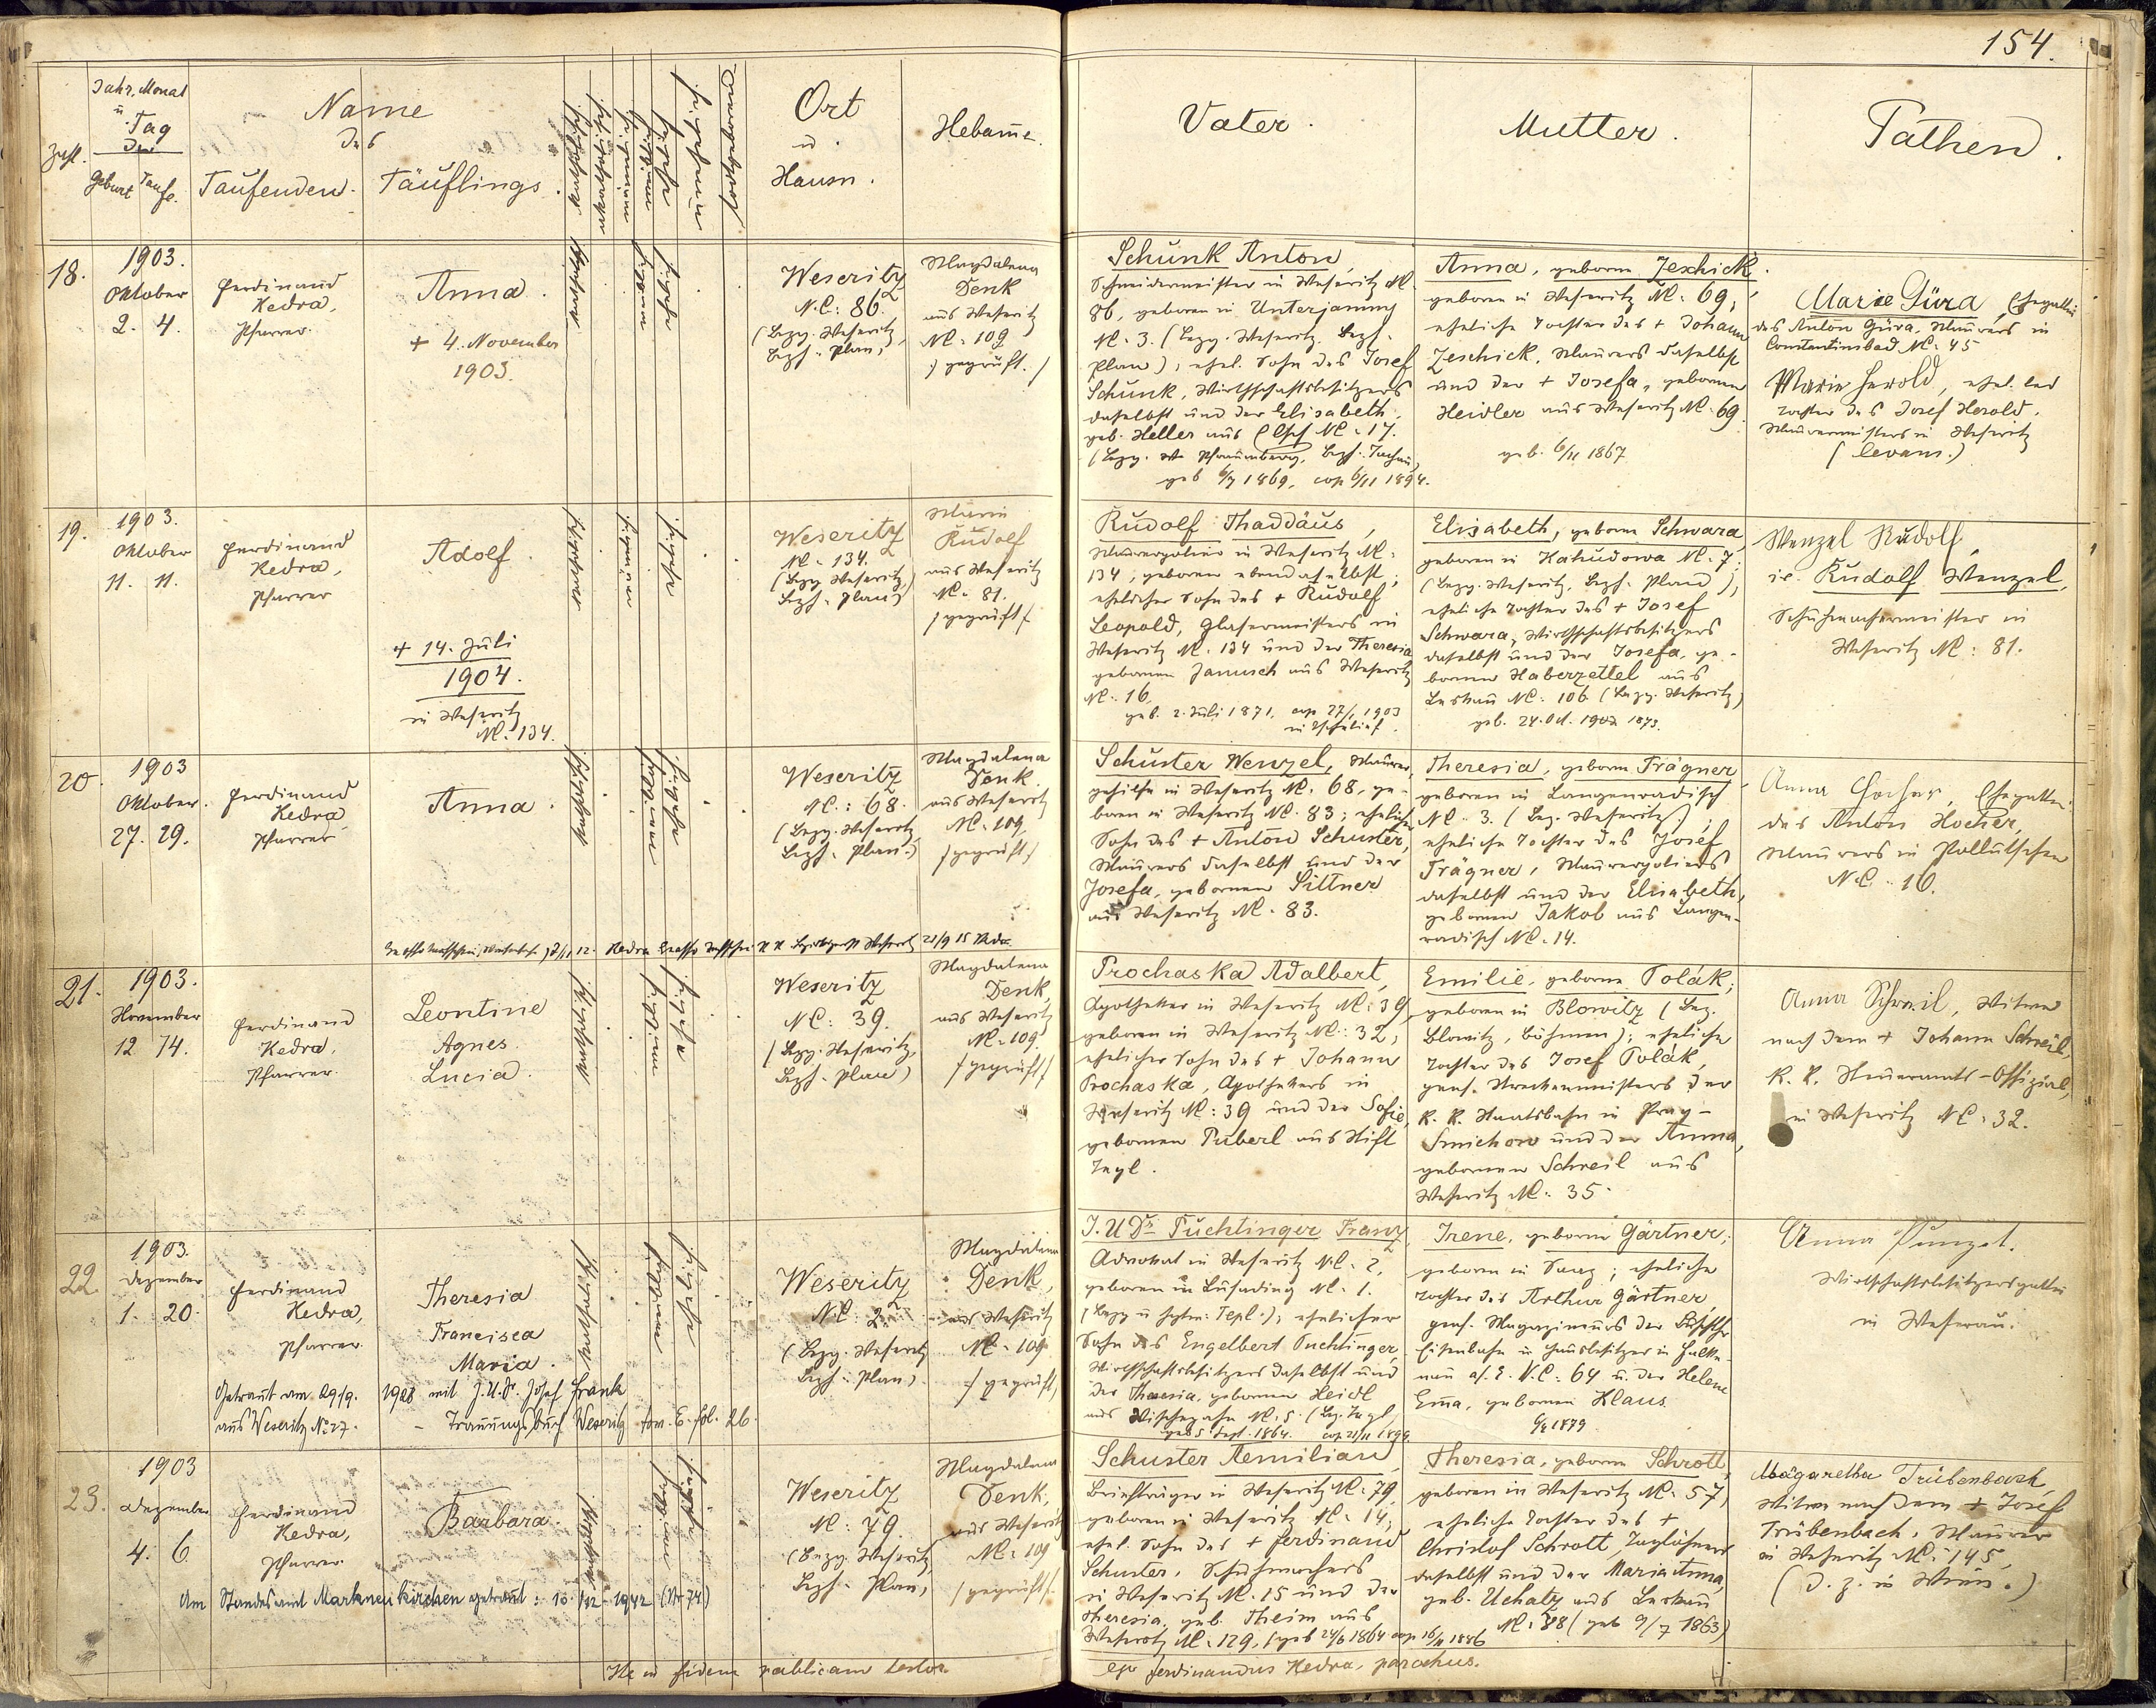 154.
Jahr, Monat
u.
Tag
der
Zahl.
Geburt Taufe.
Name
des
Taufenden. Täuflings.
Ort
u.
Hausn.
Hebame.
Vater.
Mutter.
Pathen.
18.
1903.
Oktober
2. 4.
Ferdinand
Kedra,
Pfarrer.
Anna.
+ 4. November
1903.
Weseritz
N.C: 86.
(Bezg. Weseritz,
Bezh. Plan)
Magdalena
Denk
aus Weseritz
NC: 109
/geprüft./
Schunk Anton,
Schneidermeister in Weseritz NC.
86, geboren in Unterjamny
NC. 3. (Bezg. Weseritz. Bezh.
Plan); ehel. Sohn des Josef
Schunk, Wirthschaftsbesitzers
daselbst und der Elisabeth,
geb. Heller aus Elsch NC. 17.
(Bezg. Pfraumberg, Bezh. Tachau)
geb 6/7 1869, cop 6/11 1894.
Anna, geborne Jeschick.
geboren in Weseritz NC: 69;
eheliche Tochter des + Johann
Jeschick, Maurers daselbst
und der + Josefa, gebornen
Heidler aus Weseritz NC. 69.
geb. 6/11 1867
Marie Güra, Ehegattin
des Anton Güra, Maurers in
Constantinsbad NC. 45
Marie Herold, ehel. led
Tochter des Josef Herold,
Maurermeisters in Weseritz
(levans.)
19.
1903.
Oktober
11. 11.
Ferdinand
Kedra,
Pfarrer
Adolf.
+ 14. Juli
1904.
in Weseritz
NC. 134.
Weseritz
NC. 134.
(Bezg Weseritz,
Bezh. Plan)
Marie
Rudolf
aus Weseritz
NC. 81.
/geprüft/
Rudolf Thaddäus,
Maurerpolier in Weseritz NC.
134, geboren ebendaselbst;
ehelicher Sohn des + Rudolf
Leopold, Glasermeisters in
Weseritz NC. 134 und der Theresia
gebornen Janusch aus Weseritz
NC. 16.
geb. 2. Juli 1871.
Elisabeth, geborne Schwara,
geboren in Kahudowa NC. 7;
(Bezg. Weseritz, Bezh. Plan);
eheliche Tochter des + Josef
Schwara, Wirthschaftsbesitzers
daselbst und der Josefa, ge-
bornen Haberzettel aus
Leskau NC. 106 (Bezg. Weseritz)
geb. 24. Oct. 1873.
Wenzel Rudolf,
i.e. Rudolf Wenzel,
Schuhmachermeister in
Weseritz NC: 81.
20.
1903
Oktober.
27. 29.
Ferdinand
Kedra
Pfarrer
Anna.
Weseritz
NC.: 68.
(Bezg. Weseritz,
Bezh. Plan.)
Magdalena
Denk.
aus Weseritz
NC. 109.
/geprüft/
Schuster Wenzel, Maurer,
gehilfe in Weseritz NC. 68, ge-
boren in Weseritz NC. 83; ehelicher
Sohn des + Anton Schuster,
Maurers daselbst und der
Josefa, gebornen Sittner
aus Weseritz NC. 83.
Theresia, geborne Frägner,
geboren in Langenradisch
NC. 3. (Bez. Weseritz);
eheliche Tochter des Josef
Frägner, Maurerpoliers
daselbst und der Elisabeth,
gebornen Jakob aus Langen-
radisch NC. 14.
Anna Hocher, Ehegattin
des Anton Hocher,
Maurers in Pollutschen
N.C. 16.
21.
1903.
November
12 14.
Ferdinand
Kedra,
Pfarrer.
Leontine
Agnes
Lucia.
Weseritz
NC: 39.
(Bezg. Weseritz,
Bezh. Plan)
Magdalena
Denk,
aus Weseritz
NC. 109.
/geprüft/
Prochaska Adalbert,
Apotheker in Weseritz NC: 39,
geboren in Weseritz NC: 32;
ehelicher Sohn des + Johann
Prochaska, Apothekers in
Weseritz NC: 39 und der Sofie,
gebornen Puberl aus Stift
Tepl.
Emilie, geborne Polák;
geboren in Blowitz (Bez.
Blowitz, Böhmen); eheliche
Tochter des Josef Polák,
pens. Streckenmeisters der
K. K. Staatsbahn in Prag-
Smichow und der Anna,
gebornen Schreil aus
Weseritz NC. 35.
Anna Schreil, Witwe
nach dem + Johann Schreil,
K. K. Steueramts-Offizial,
in Weseritz NC. 32.
22.
1903.
Dezember
1. 20.
Ferdinand
Kedra,
Pfarrer.
Theresia
Francisca
Maria.
Getraut am 29/9. 1928 mit J.U.Dr. Josef Frank
aus Weseritz No 27. – Trauungsbuch Weseritz tom. E. fol. 26.
Weseritz
NC: 2.
(Bezg. Weseritz
Bezh. Plan)
Magdalena
Denk,
aus Weseritz
NC. 109.
/geprüft/
J.U.Dr. Tuchtinger Franz
Advokat in Weseritz NC. 2,
geboren in NC. 1.
(Bezg u. Tepl.); ehelicher
Sohn des Engelbert Tuchtinger,
Wirthschaftsbesitzers daselbst und
der Theresia, gebornen Heidl
aus NC. 5. (Bez. Tepl)
geb 5 Sept. 1864. cop 21/11 1899.
Irene, geborne Gärtner;
geboren in Saaz; eheliche
Tochter des Arthur Gärtner,
pens. Magazineurs der
Eisenbahn u. Hausbesitzer in Falke-
nau a/.E. N.C: 64 u. der Helene
Ema, gebornen Klaus
1879
Anna Punzet.
Wirtschaftsbesitzersgattin
in Weserau.
23.
1903
Dezember
4. 6.
Ferdinand
Kedra,
Pfarrer.
Barbara.
Am Standesamt Markneukirchen getraut: 10. 1942 (Nr 74.)
Weseritz
NC: 79.
(Bezg. Weseritz,
Bezh. Plan)
Magdalena
Denk,
aus Weseritz
NC. 109
/geprüft/
Schuster Aemilian,
Briefträger in Weseritz NC: 79,
geboren in Weseritz NC. 14;
ehel. Sohn des + Ferdinand
Schuster, Schuhmachers
in Weseritz NC. 15 und der
Theresia, geb. Theim aus
Weseritz NC. 129,
Theresia, geborne Schrott,
geboren in Weseritz NC. 57,
eheliche Tochter des +
Christof Schrott, Taglöhners
daselbst und der Maria Anna,
geb. Uchatz aus Leskau
NC. 88 (geb 9/7 1863)
Margaretha Trübenbach,
Witwe nach dem + Josef
Trübenbach, Maurer
in Weseritz NC. 145,
(d. z. in Wien.)
Ita in fidem publicam testor
ego Ferdinandus Kedra, parochus.